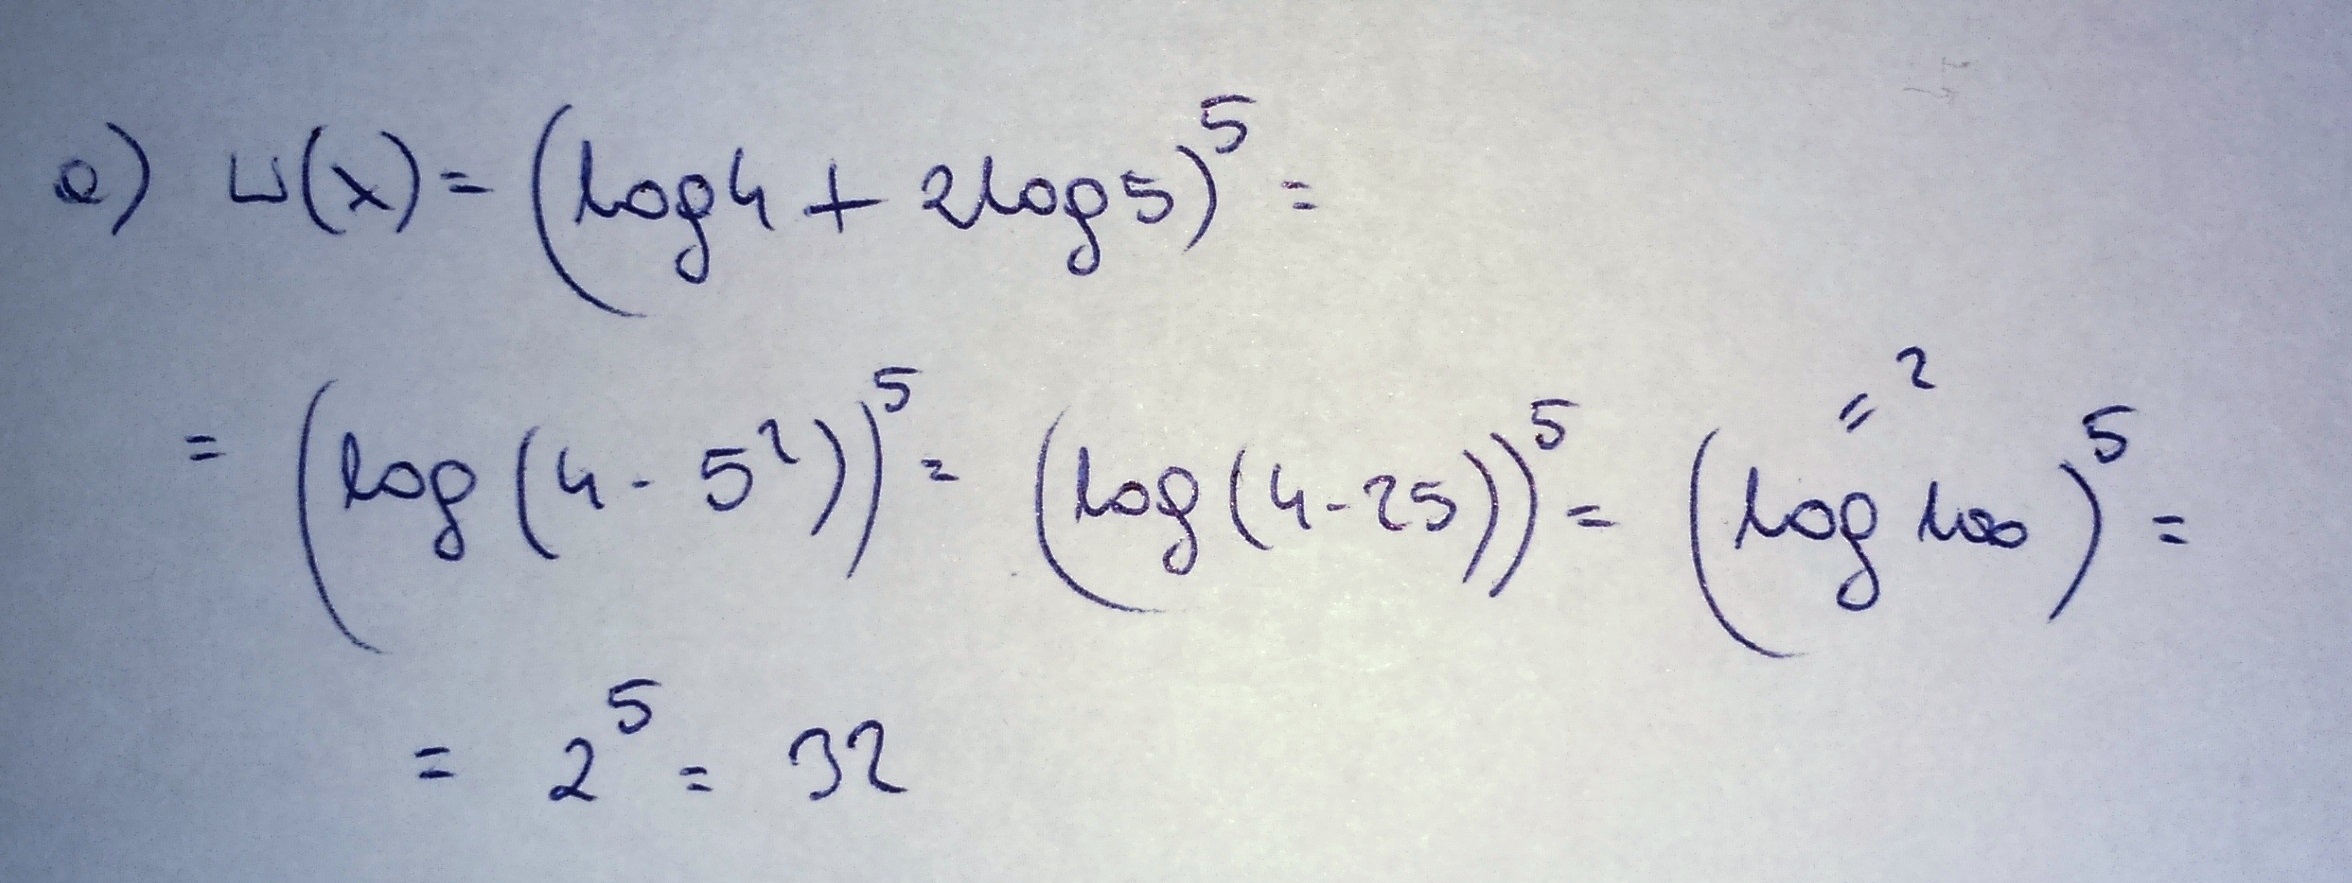 a) W(x) = (log4 + 2log5)^5 =
= (log(4 · 5^2))^5 = (log(4 · 25))^5 = (log 100)^5 = = 2
= 2^5 = 32